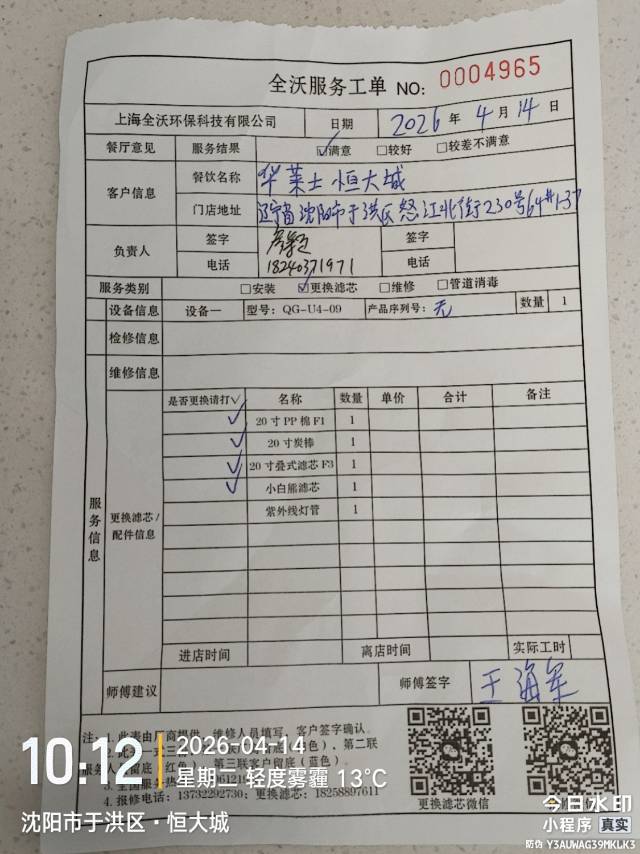 全沃服务工单 NO: 0004965
上海全沃环保科技有限公司 日期 2026 年 4 月 14 日
餐厅意见 服务结果 ☑满意 □较好 □较差不满意
客户信息 餐饮名称 华莱士恒大城
门店地址 辽宁省沈阳市于洪区怒江北街230号64#1-37
负责人 签字 签字
电话 18240371971 电话
服务类别 □安装 ☑更换滤芯 □维修 □管道消毒
设备信息 设备一 型号: QG-U4-09 产品序列号: 无 数量 1
检修信息
维修信息
是否更换请打√ 名称 数量 单价 合计 备注
√ 20寸PP棉F1 1
√ 20寸炭棒 1
√ 20寸叠式滤芯F3 1
√ 小白熊滤芯 1
紫外线灯管 1
服务信息
更换滤芯/
配件信息
进店时间 离店时间 实际工时
师傅建议 师傅签字 王海军
注: 1. 此表由厂商提供、维修人员填写、客户签字确认。
第二联
服务人 留底(红色)、第三联客户留底(蓝色)。
3. 全国服务热
4. 报修电话: 13732292730; 更换滤芯: 18258897611
更换滤芯微信
10:12 2026-04-14
星期二 轻度雾霾 13℃
沈阳市于洪区·恒大城
今日水印
小程序 真实
防伪 Y3AUWAG39MKLK3